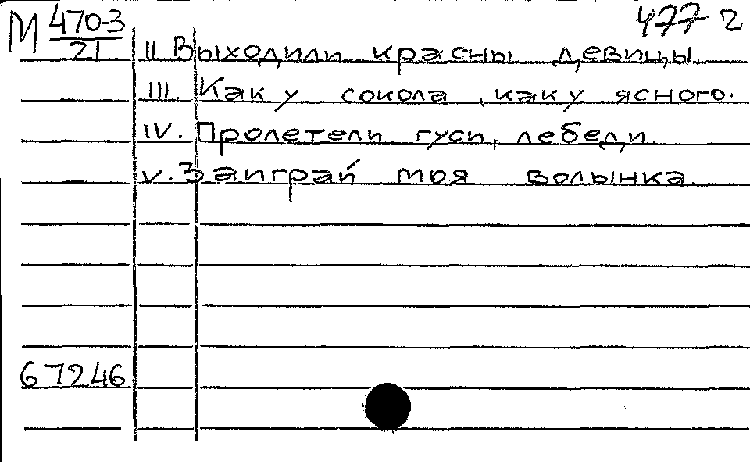 М 470-3 477 2
21 II Выходили красны девицы
III. Как у сокола, как у ясного.
IV. Пролетели гуси, лебеди.
V. Заиграй моя волынка.
67246